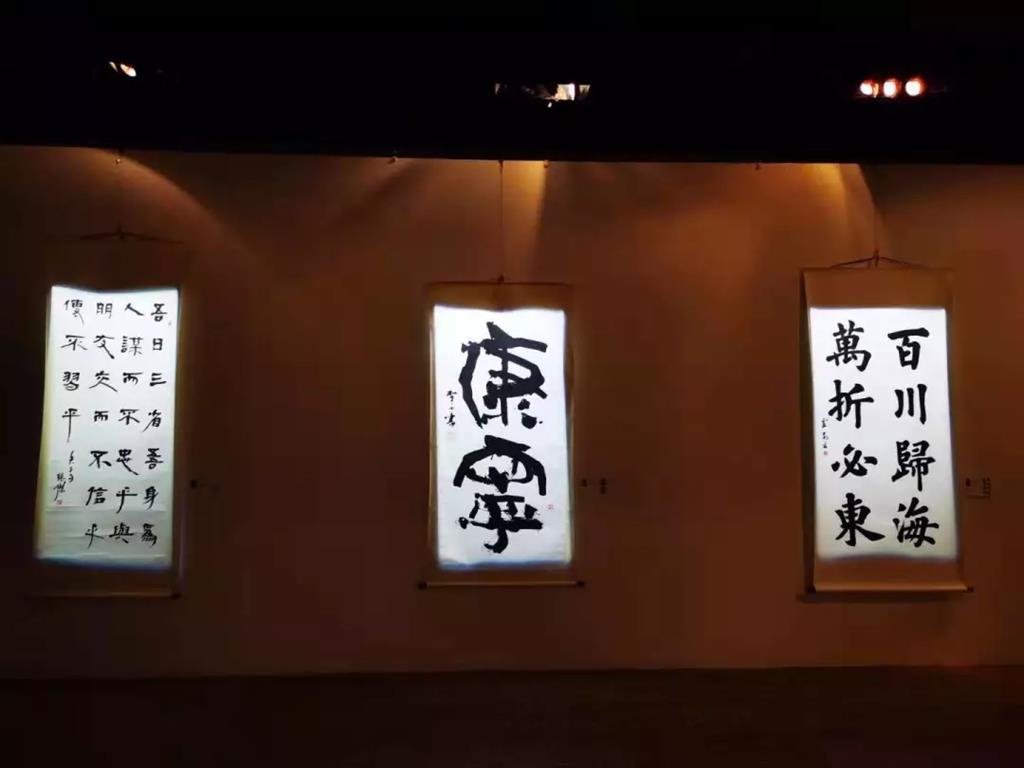 吾日三省吾身為
人謀而不忠乎與
朋友交而不信乎
傳不習乎
康寧
百川歸海
萬折必東